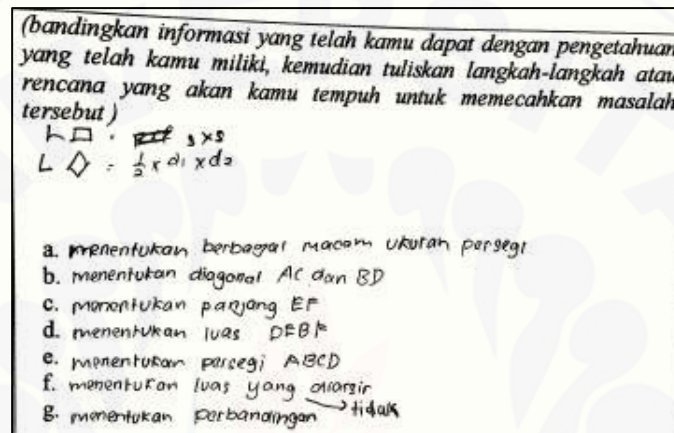 (bandingkan informasi yang telah kamu dapat dengan pengetahuan
yang telah kamu miliki, kemudian tuliskan langkah-langkah atau
rencana yang akan kamu tempuh untuk memecahkan masalah
tersebut)
L □ = s x s
L ◇ = 1/2 x d1 x d2
a. menentukan berbagai macam ukuran persegi
b. menentukan diagonal AC dan BD
c. menentukan panjang EF
d. menentukan luas DEBF
e. menentukan persegi ABCD
f. menentukan luas yang diarsir
→ tidak
g. menentukan perbandingan